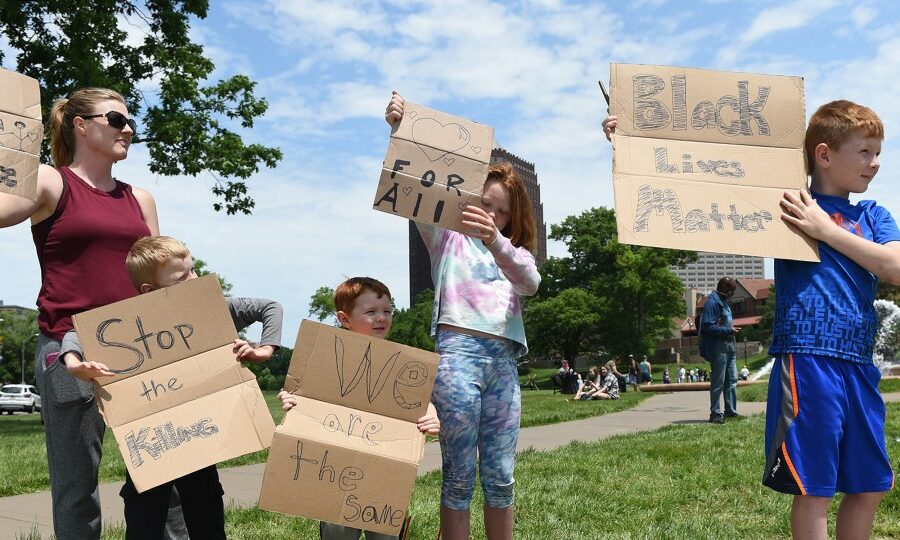 Stop
the
Killing
We
are
the
same
FOR
All
Black
Lives
Matter